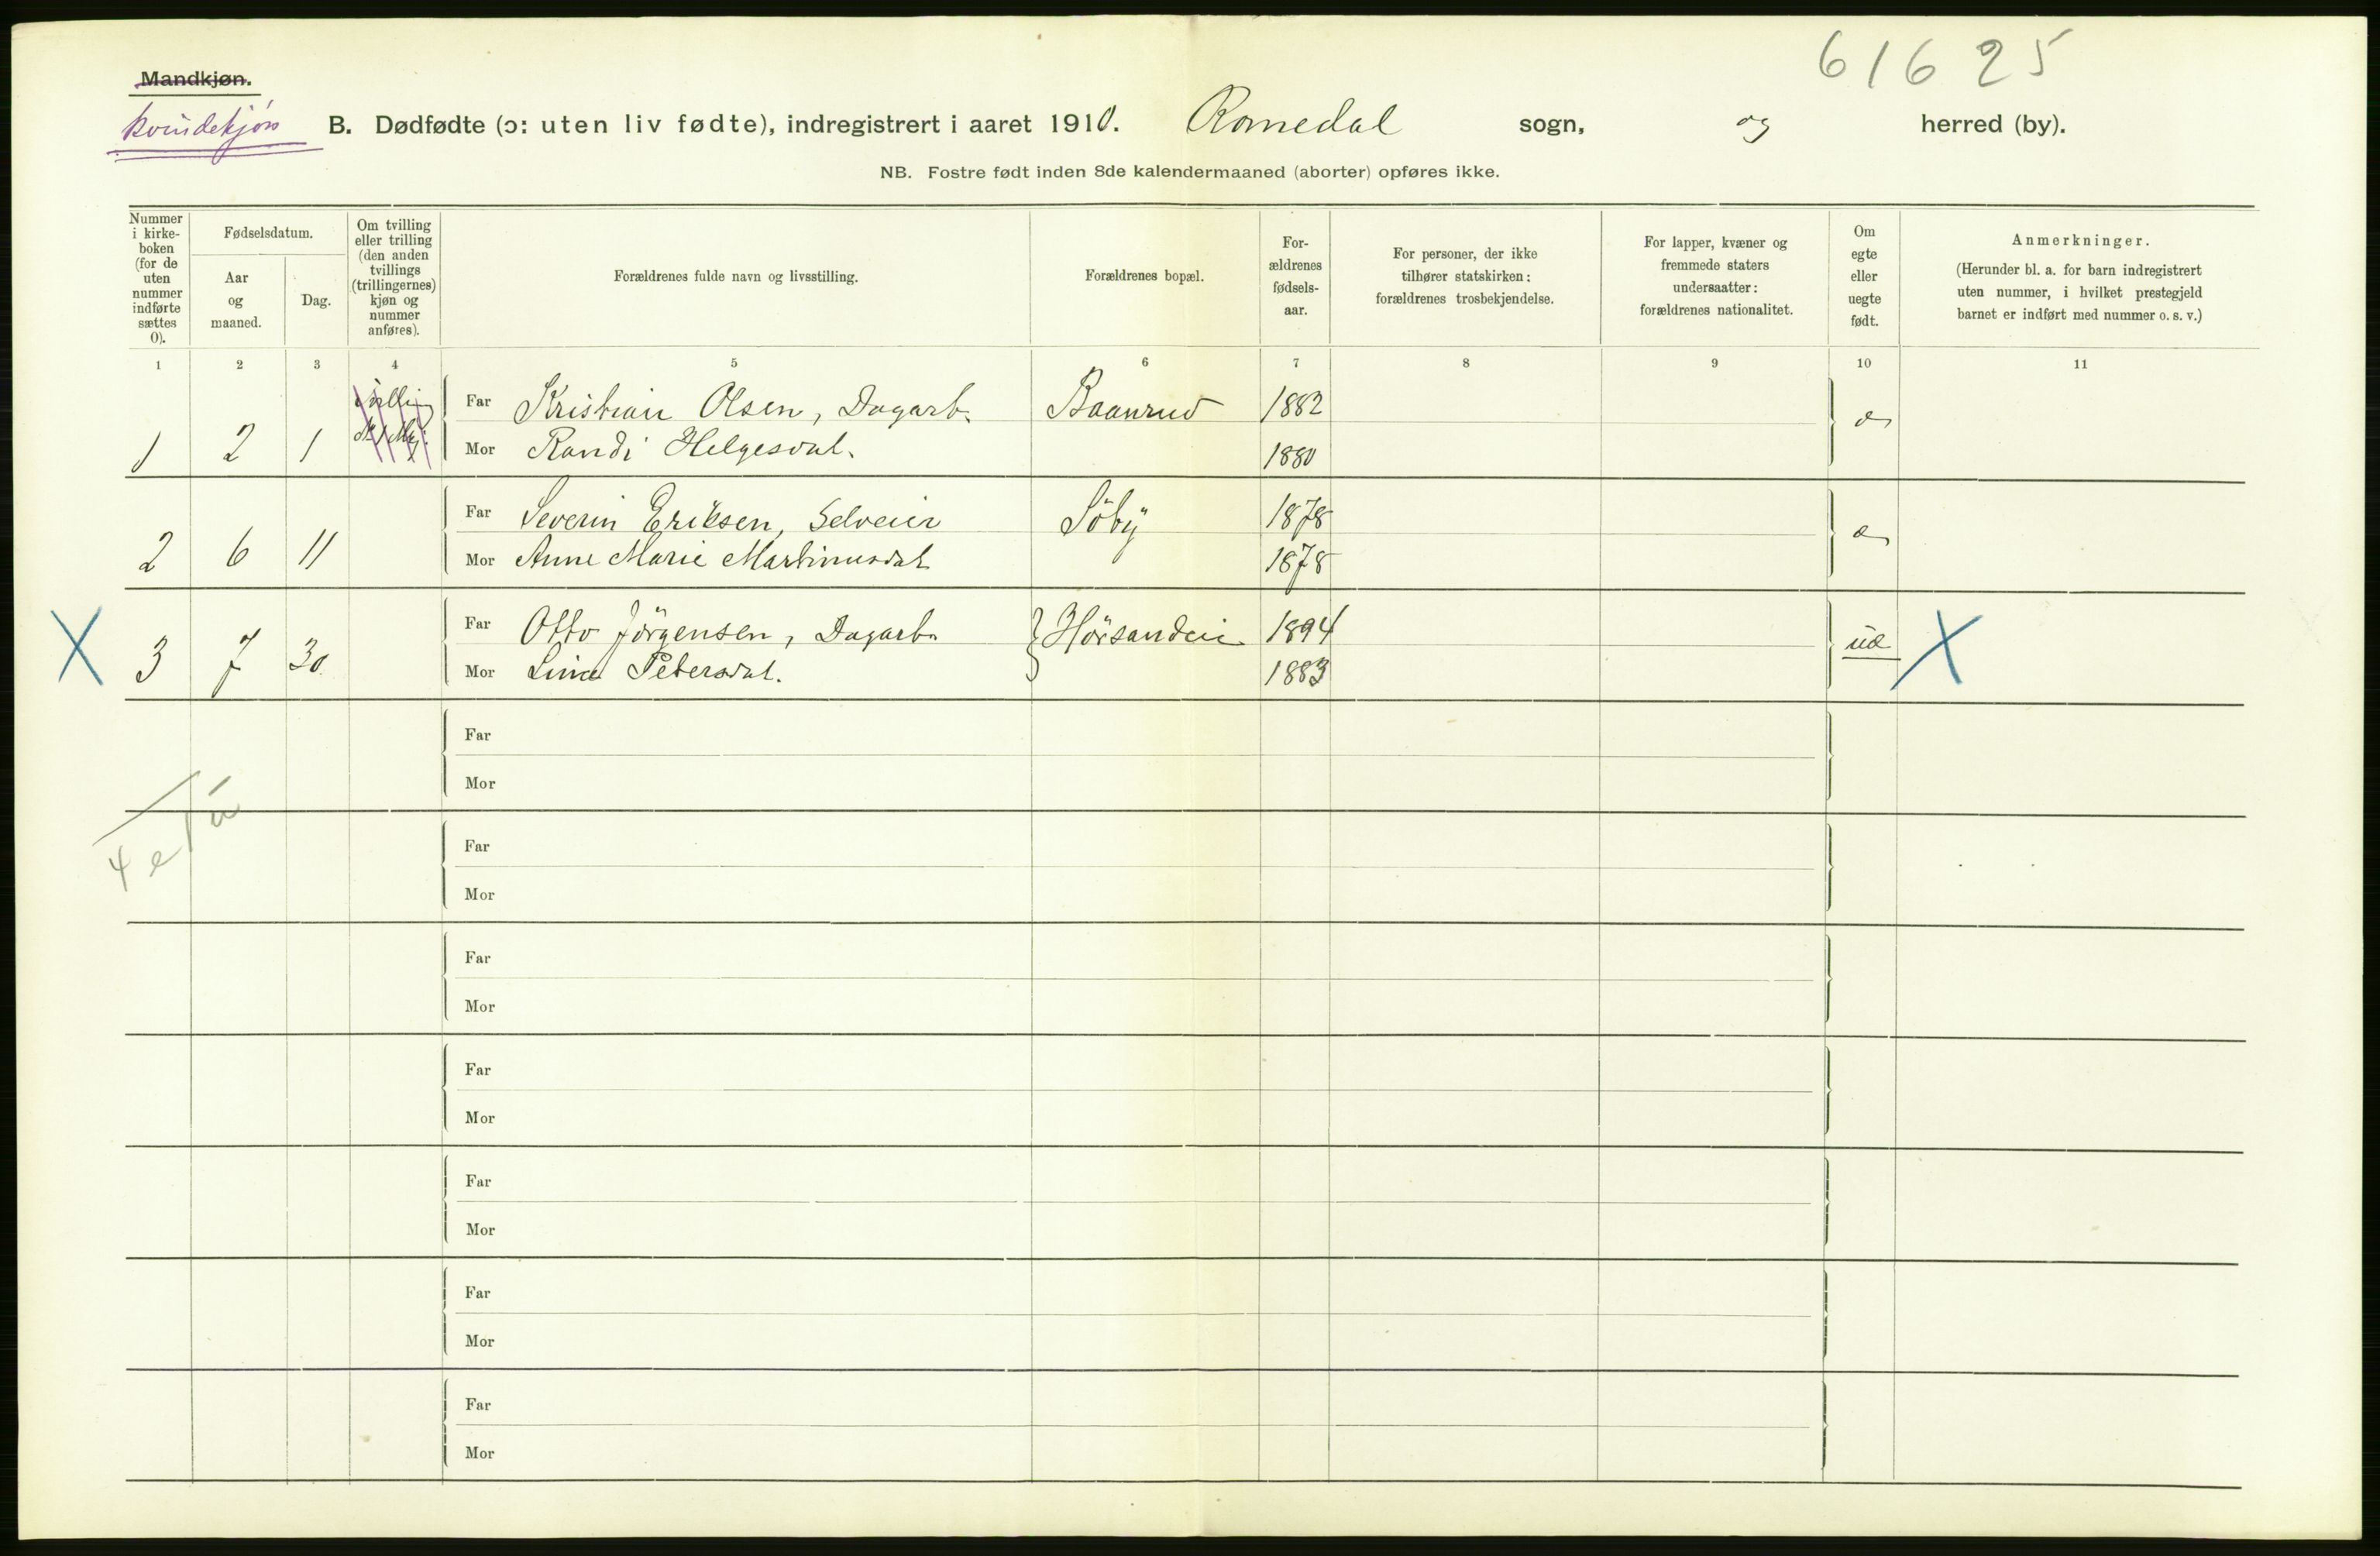 61625
Mandkjøn.
Kvindekjøn
B. Dødfødte (ɔ: uten liv fødte), indregistrert i aaret 1910. Romedal sogn, og herred (by).
NB. Fostre født inden 8de kalendermaaned (aborter) opføres ikke.
Nummer
i kirke-
boken
(for de
uten
nummer
indførte
sættes
0).
Fødselsdatum.
Aar
og
maaned.
Dag.
Om tvilling
eller trilling
(den anden
tvillings
(trillingernes)
kjøn og
nummer
anføres).
Forældrenes fulde navn og livsstilling.
Forældrenes bopæl.
For-
ældrenes
fødsels-
aar.
For personer, der ikke
tilhører statskirken:
forældrenes trosbekjendelse.
For lapper, kvæner og
fremmede staters
undersaatter:
forældrenes nationalitet.
Om
egte
eller
uegte
født.
Anmerkninger.
(Herunder bl. a. for barn indregistrert
uten nummer, i hvilket prestegjeld
barnet er indført med nummer o. s. v.)
1 2 3 4 5 6 7 8 9 10 11
Tvilling
Far Kristian Olsen, Dagarb. Baanrud 1882
1 2 1 Mor Randi Helgesdat. 1880
Far Severin Eriksen, Selveier Söby 1878
2 6 11 Mor Anne Marie Martinusdat 1878
Far Otto Jörgensen, Dagarb. Hörsandeie 1894
X 3 7 30. Mor Lina Petersdat. 1883 X
Far
Mor
4 e 1 u
Far
Mor
Far
Mor
Far
Mor
Far
Mor
Far
Mor
Far
Mor